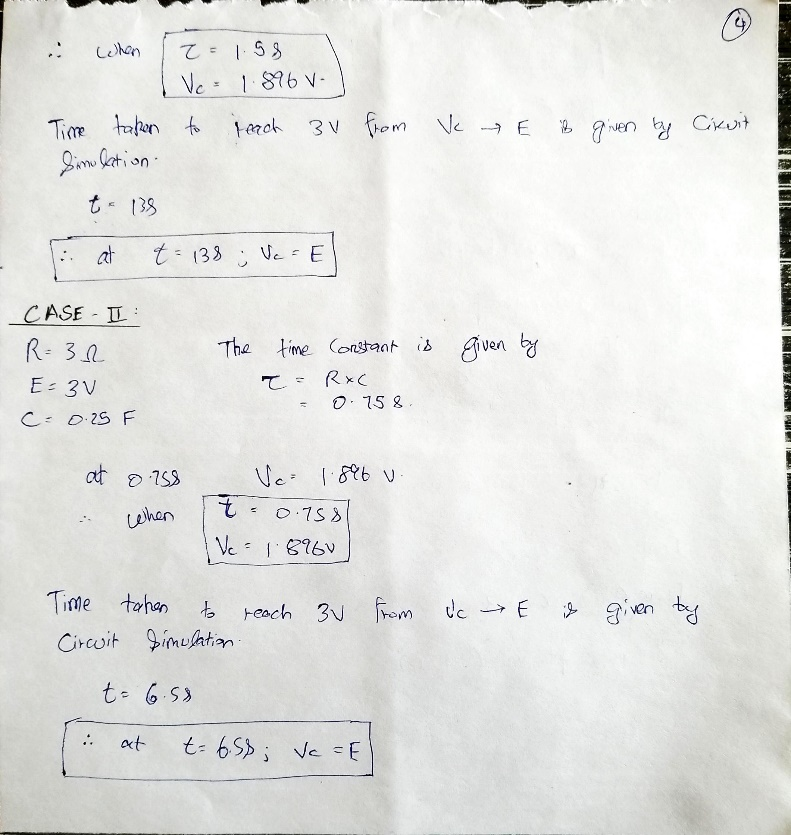 4
∴ when τ = 1.5s
Vc = 1.896 V.
Time taken to reach 3V from Vc → E is given by Cikuit
Simulation.
t = 13s
∴ at t = 13s ; Vc = E
CASE - II :
R = 3 Ω The time Constant is given by
E = 3V τ = R×C
C = 0.25 F = 0.75 s.
at 0.75s Vc = 1.896 V.
∴ when t = 0.75s
Vc = 1.896V
Time taken to reach 3V from Vc → E is given by
Circuit Simulation.
t = 6.5s
∴ at t = 6.5s ; Vc = E